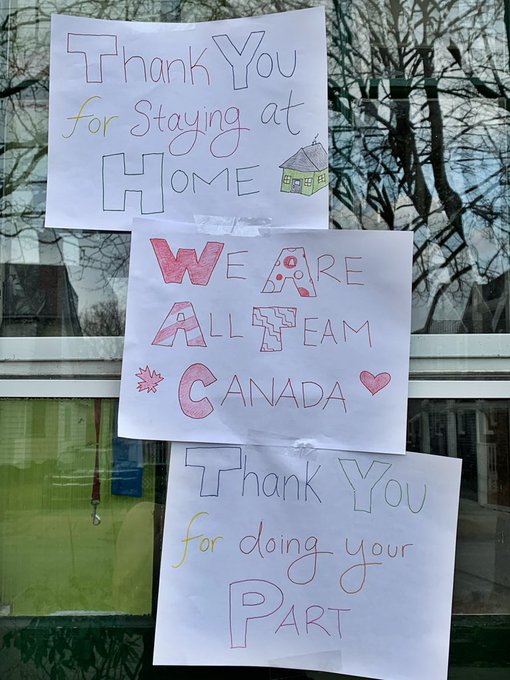 Thank You
for Staying at
Home
We Are
All Team
Canada
Thank You
for doing your
Part